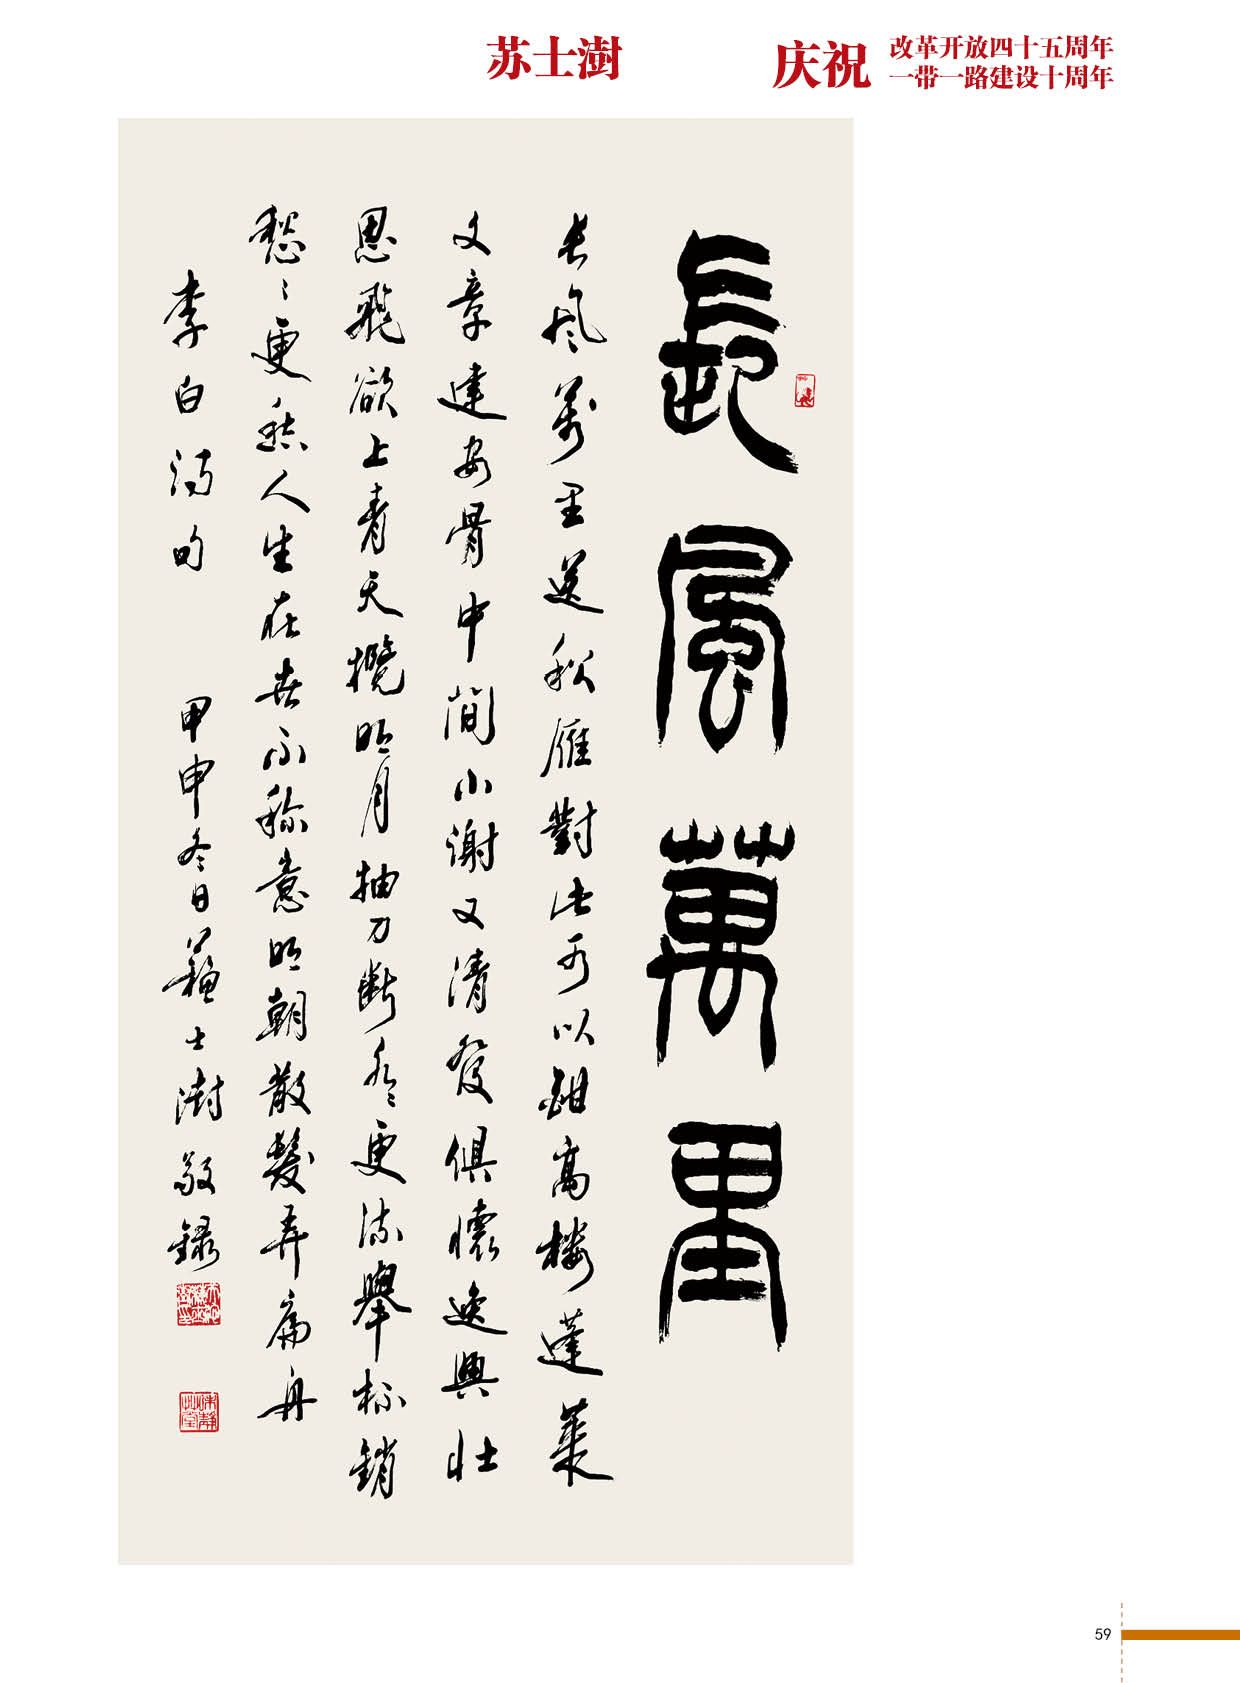 苏士澍
庆祝
改革开放四十五周年
一带一路建设十周年
長風萬里
长风萬里送秋雁對此可以酣髙楼蓬萊
文章建安骨中間小謝又清發俱懷逸興壮
思飛欲上青天攬明月抽刀断水更流舉杯銷
愁〻更愁人生在世不称意明朝散髮弄扁舟
李白诗句 甲申冬日蘇士澍敬録
59